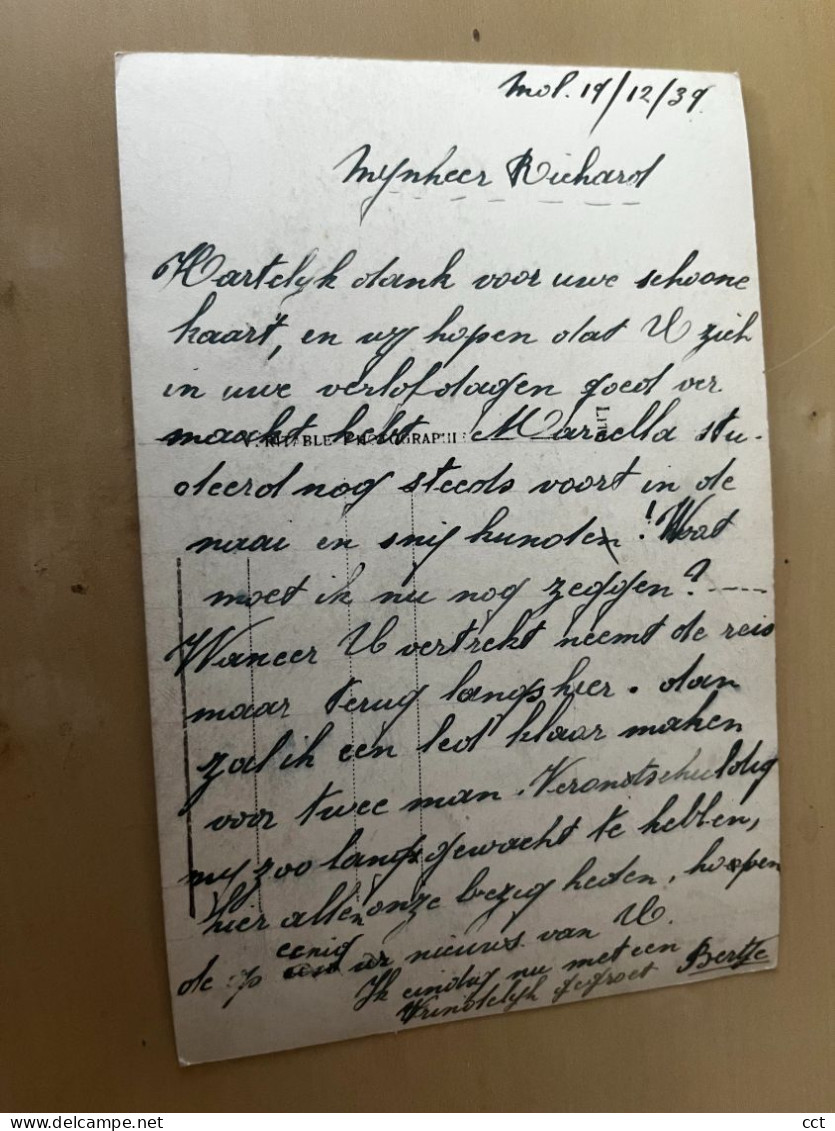 Mol. 19/12/39.
Mynheer Richard
Hartelyk dank voor uwe schoone
kaart, en wy hopen dat U zich
in uwe verlofdagen goed ver
maakt hebt. Marcella stu-
VÉRITABLE PHOTOGRAPHIE
deerd nog steeds voort in de
naai en snij kunden! Wat
moet ik nu nog zeggen?
Waneer U vertrekt neemt de reis
maar terug langs hier. dan
zal ik een bed klaar maken
voor twee man. Verondschuldig
my zoo lang gewacht te hebben,
hier allen onze bezigheden, hopen
de op eenig nieuws van U.
Ik eindig nu met een
Vrindelyk gegroet Bertje
cct